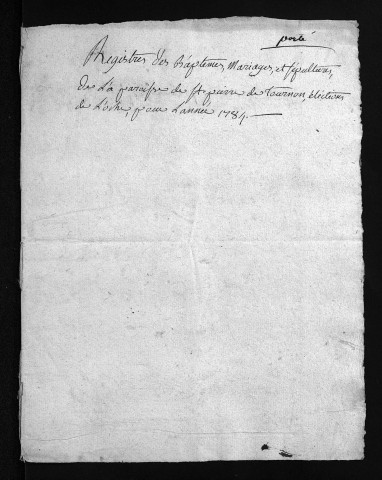 porté
Registres des Baptemes, Mariages, et sepultures,
de La paroisse de st pierre de Tournon, élections
de Loche, pour L'année 1784.